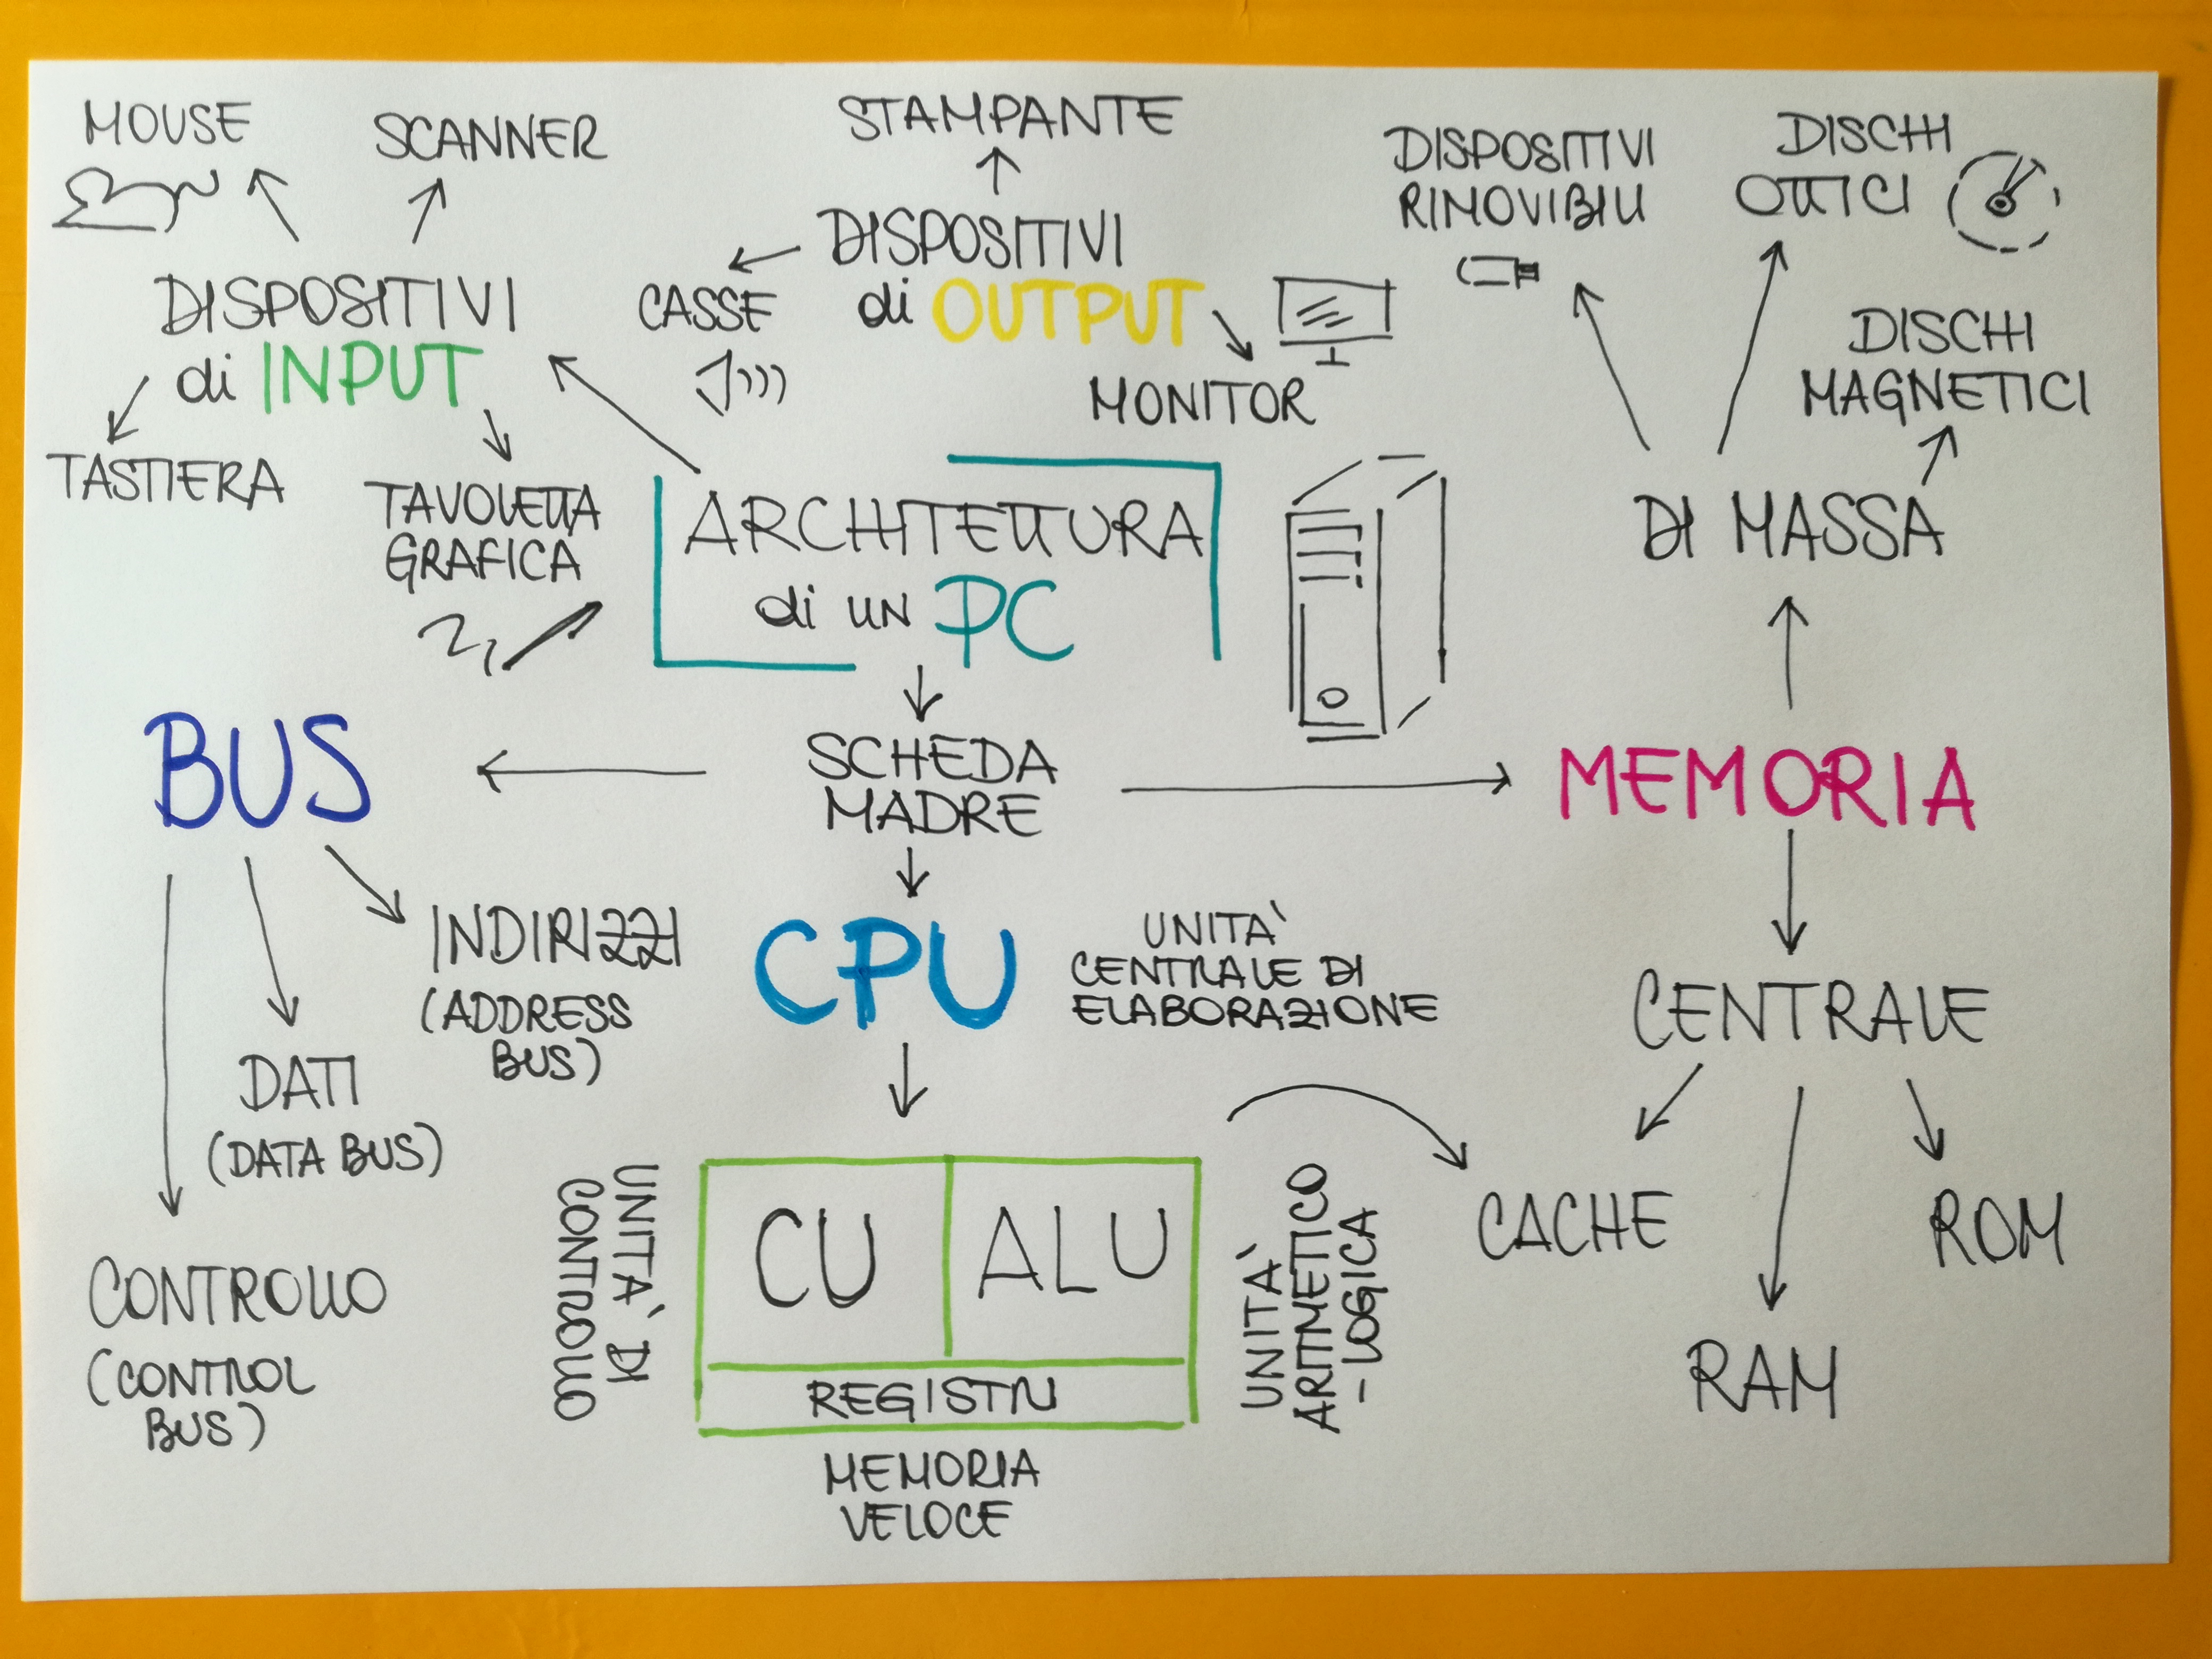 MOUSE
SCANNER
DISPOSITIVI
di INPUT
TASTIERA
TAVOLETTA
GRAFICA
STAMPANTE
DISPOSITIVI
di OUTPUT
CASSE
MONITOR
DISPOSITIVI
RIMOVIBILI
DISCHI
OTTICI
DISCHI
MAGNETICI
DI MASSA
ARCHITETTURA
di UN PC
BUS
SCHEDA
MADRE
MEMORIA
INDIRIZZI
(ADDRESS
BUS)
DATI
(DATA BUS)
CONTROLLO
(CONTROL
BUS)
CPU
UNITA'
CENTRALE DI
ELABORAZIONE
UNITA' DI
CONTROLLO
CU
ALU
REGISTRI
MEMORIA
VELOCE
UNITA'
ARITMETICO
-LOGICA
CENTRALE
CACHE
ROM
RAM